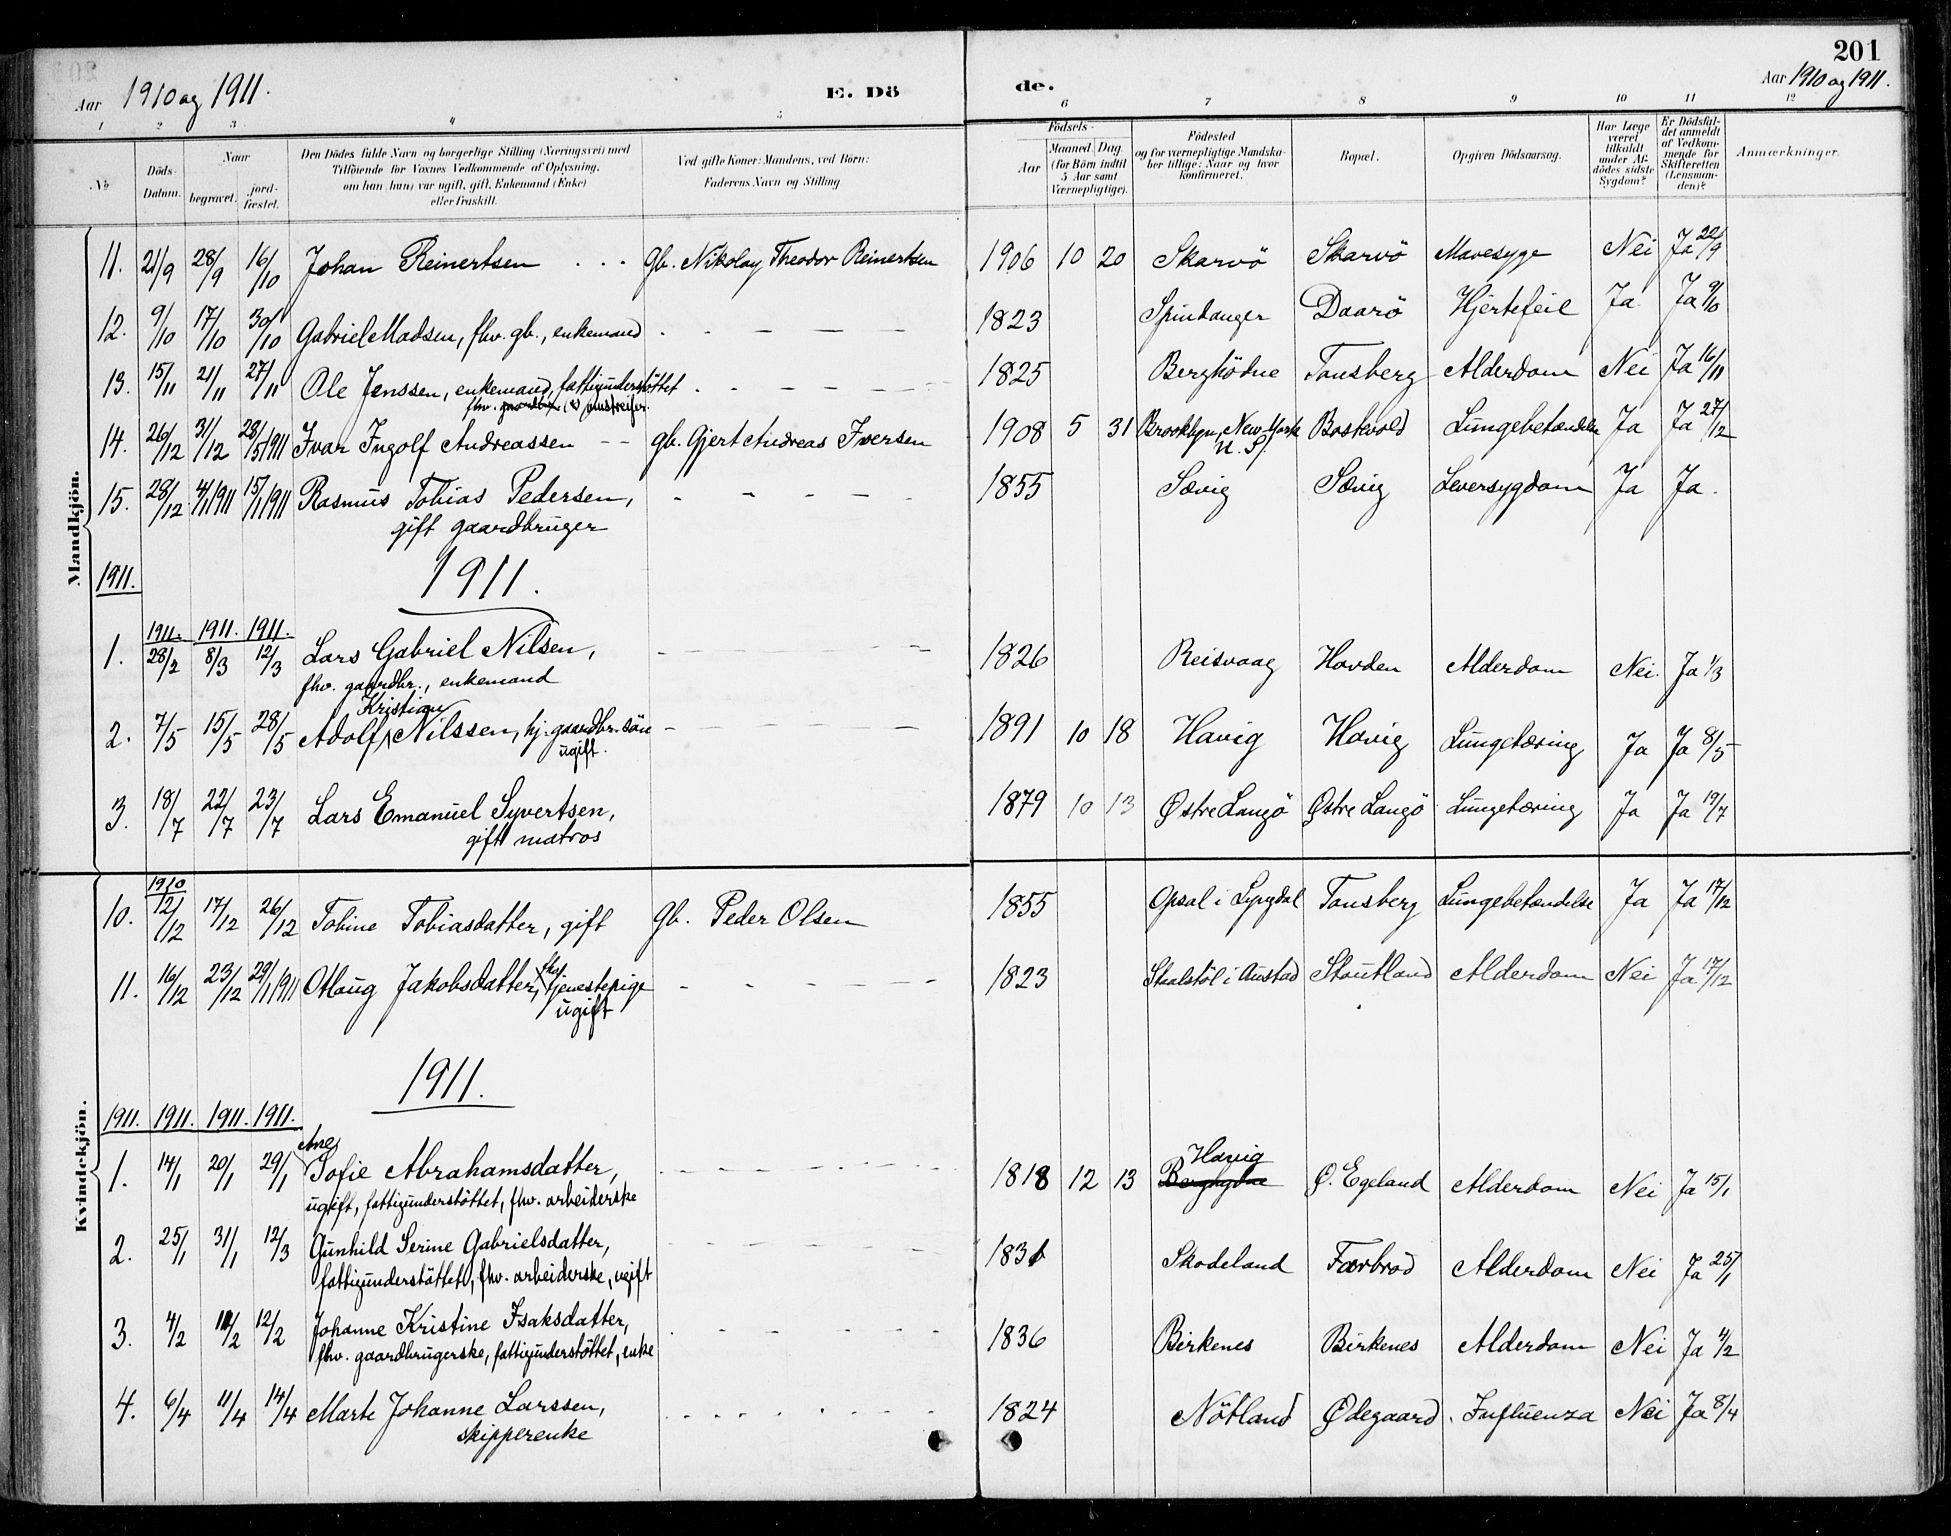 201
Aar 1910 og 1911.
E. Dö
de.
Aar 1910 og 1911.
1 2 3 4 5 6 7 8 9 10 11 12
No.
Döds-Datum.
Naar
begravet.
jord-fæstet.
Den Dödes fulde Navn og borgerlige Stilling (Næringsvei) med
Tilföiende for Voxnes Vedkommende af Oplysning,
om han (hun) var ugift, gift, Enkemand (Enke)
eller fraskilt.
Ved gifte Koner: Mandens, ved Börn:
Faderens Navn og Stilling
Födsels-
Aar
Maaned. Dag.
(for Börn indtil
5 Aar samt
Værnepligtige).
Födested
og for værnepligtige Mandska-
ber tillige: Naar og hvor
konfirmeret.
Bopæl.
Opgiven Dödsaarsag.
Har Læge
været
tilkaldt
under Af-
dödes sidste
Sygdom?
Er Dödsfal-
det anmeldt
af Vedkom-
mende for
Skifteretten
(Lensman-
den)?
Anmærkninger.
Mandkjön.
11. 21/9 28/9 16/10 Johan Reinertsen gb. Nikolay Theodor Reinertsen 1906 10 20 Skarvö Skarvö Mavesyge Nei Ja 22/9
12. 9/10 17/10 30/10 Gabriel Madsen, fhv. gb., enkemand 1823 Spindanger Daarö Hjertefeil Ja Ja 9/10
13. 15/11 21/11 27/11 Ole Jenssen, enkemand, fattigunderstöttet 1825 Berghödne Tonsberg Alderdom Nei Ja 16/11
fhv. omstreifer.
14. 26/12 31/12 28/5 1911 Ivar Ingolf Andreassen gb. Gjert Andreas Iversen 1908 5 31 Brooklyn, New York Bostvold Lungebetændelse Ja Ja 27/12
U. S.
15. 28/12 4/1 1911 15/1 1911 Rasmus Tobias Pedersen, 1855 Sævig Sævig Leversygdom Ja Ja.
gift gaardbruger
1911. 1911.
1911. 1911. 1911.
1. 28/2 8/3 12/3 Lars Gabriel Nilsen, 1826 Reisvaag Hovden Alderdom Nei. Ja 1/3
fhv. gaardbr., enkemand
Kristian
2. 7/5 15/5 28/5 Adolf Nilssen, hj. gaardbr. sön 1891 10 18 Havig Havig Lungetæring Ja Ja 8/5
ugift.
3. 18/7 22/7 23/7 Lars Emanuel Syvertsen, 1879 10 13 Østre Langö Østre Langö Lungetæring Ja Ja 19/7
gift matros
Kvindekjön.
1910
10. 12/12 17/12 26/12 Tobine Tobiasdatter, gift gb. Peder Olsen 1855 Opsal i Lyngdal Tonsberg Lungebetændelse Ja Ja 17/12
11. 16/12 23/12 29/1 1911 Otlaug Jakobsdatter, fhv. tjenestepige 1823 Staalstöl i Austad Stoutland Alderdom Nei Ja 17/12
ugift
1911.
1911. 1911. 1911. 1911.
Ane
1. 14/1 20/1 29/1 Sofie Abrahamsdatter, 1818 12 13 Havig Ø. Egeland Alderdom Nei Ja 15/1
ugift, fattigunderstöttet, fhv. arbeiderske
2. 25/1 31/1 12/3 Gunhild Serine Gabrielsdatter, 1831 Skodeland Færbrod Alderdom Nei Ja 25/1
fattigunderstöttet, fhv. arbeiderske, ugift
3. 4/2 11/2 12/2 Johanne Kristine Isaksdatter, 1836 Birkenes Birkenes Alderdom Nei Ja 4/2
fhv. gaardbrugerske, fattigunderstöttet, enke
4. 6/4 11/4 14/4 Marte Johanne Larssen, 1824 Nötland Ødegaard Influenza Nei Ja 8/4
skipperenke